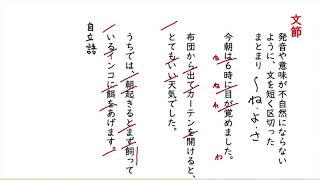 文節
発音や意味が不自然にならない
ように、文を短く区切った
まとまり 〜ね・よ・さ
今朝は6時に目が覚めました。
ね ね ね わ
布団から出てカーテンを開けると、
とてもいい天気でした。
うちでは、朝起きるとまず飼って
いるインコに餌をあげます。
自立語